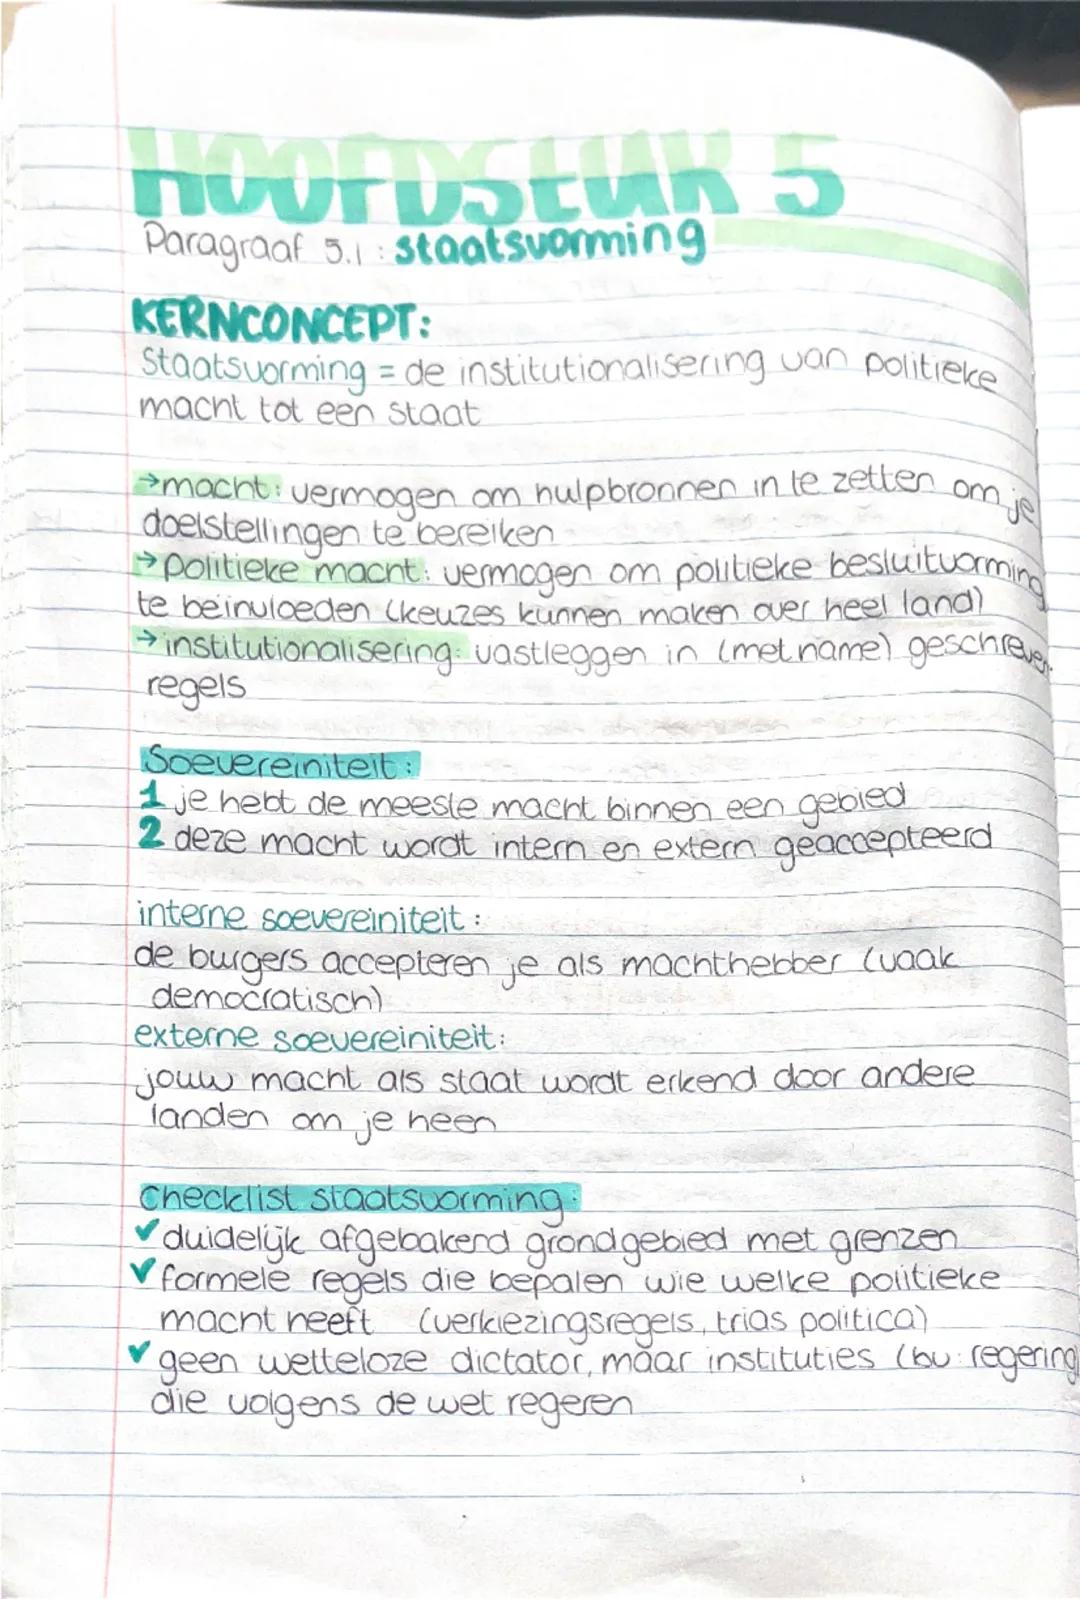 HOOFDSTUK 5
Paragraaf 5.1 : staatsvorming
KERNCONCEPT:
Staatsvorming = de institutionalisering van politieke
macht tot een staat
→macht: vermogen om hulpbronnen in te zetten om je
doelstellingen te bereiken
→politieke macht: vermogen om politieke besluitvorming
te beïnvloeden (keuzes kunnen maken over heel land)
→institutionalisering: vastleggen in (met name) geschreven
regels
Soevereiniteit:
1 je hebt de meeste macht binnen een gebied
2 deze macht wordt intern en extern geaccepteerd
interne soevereiniteit:
de burgers accepteren je als machthebber (vaak
democratisch)
externe soevereiniteit:
jouw macht als staat wordt erkend door andere
landen om je heen
Checklist staatsvorming:
✓ duidelijk afgebakend grondgebied met grenzen
✓ formele regels die bepalen wie welke politieke
macht heeft (verkiezingsregels, trias politica)
✓ geen wetteloze dictator, maar instituties (bv: regering)
die volgens de wet regeren